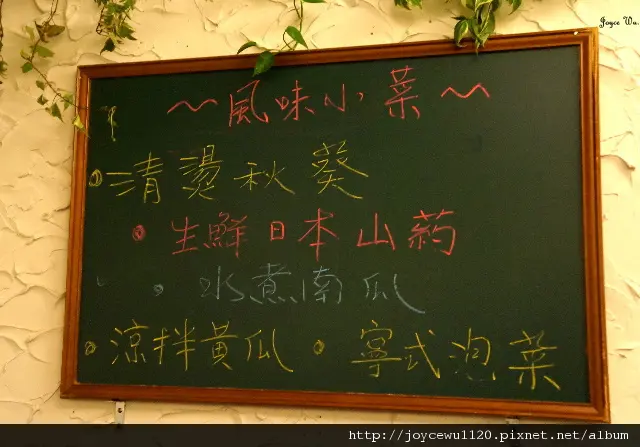 Joyce Wu.
~風味小菜~
•清燙秋葵
•生鮮日本山葯
•水煮南瓜
•涼拌黃瓜 •寧式泡菜
http://joycewu1120.pixnet.net/album